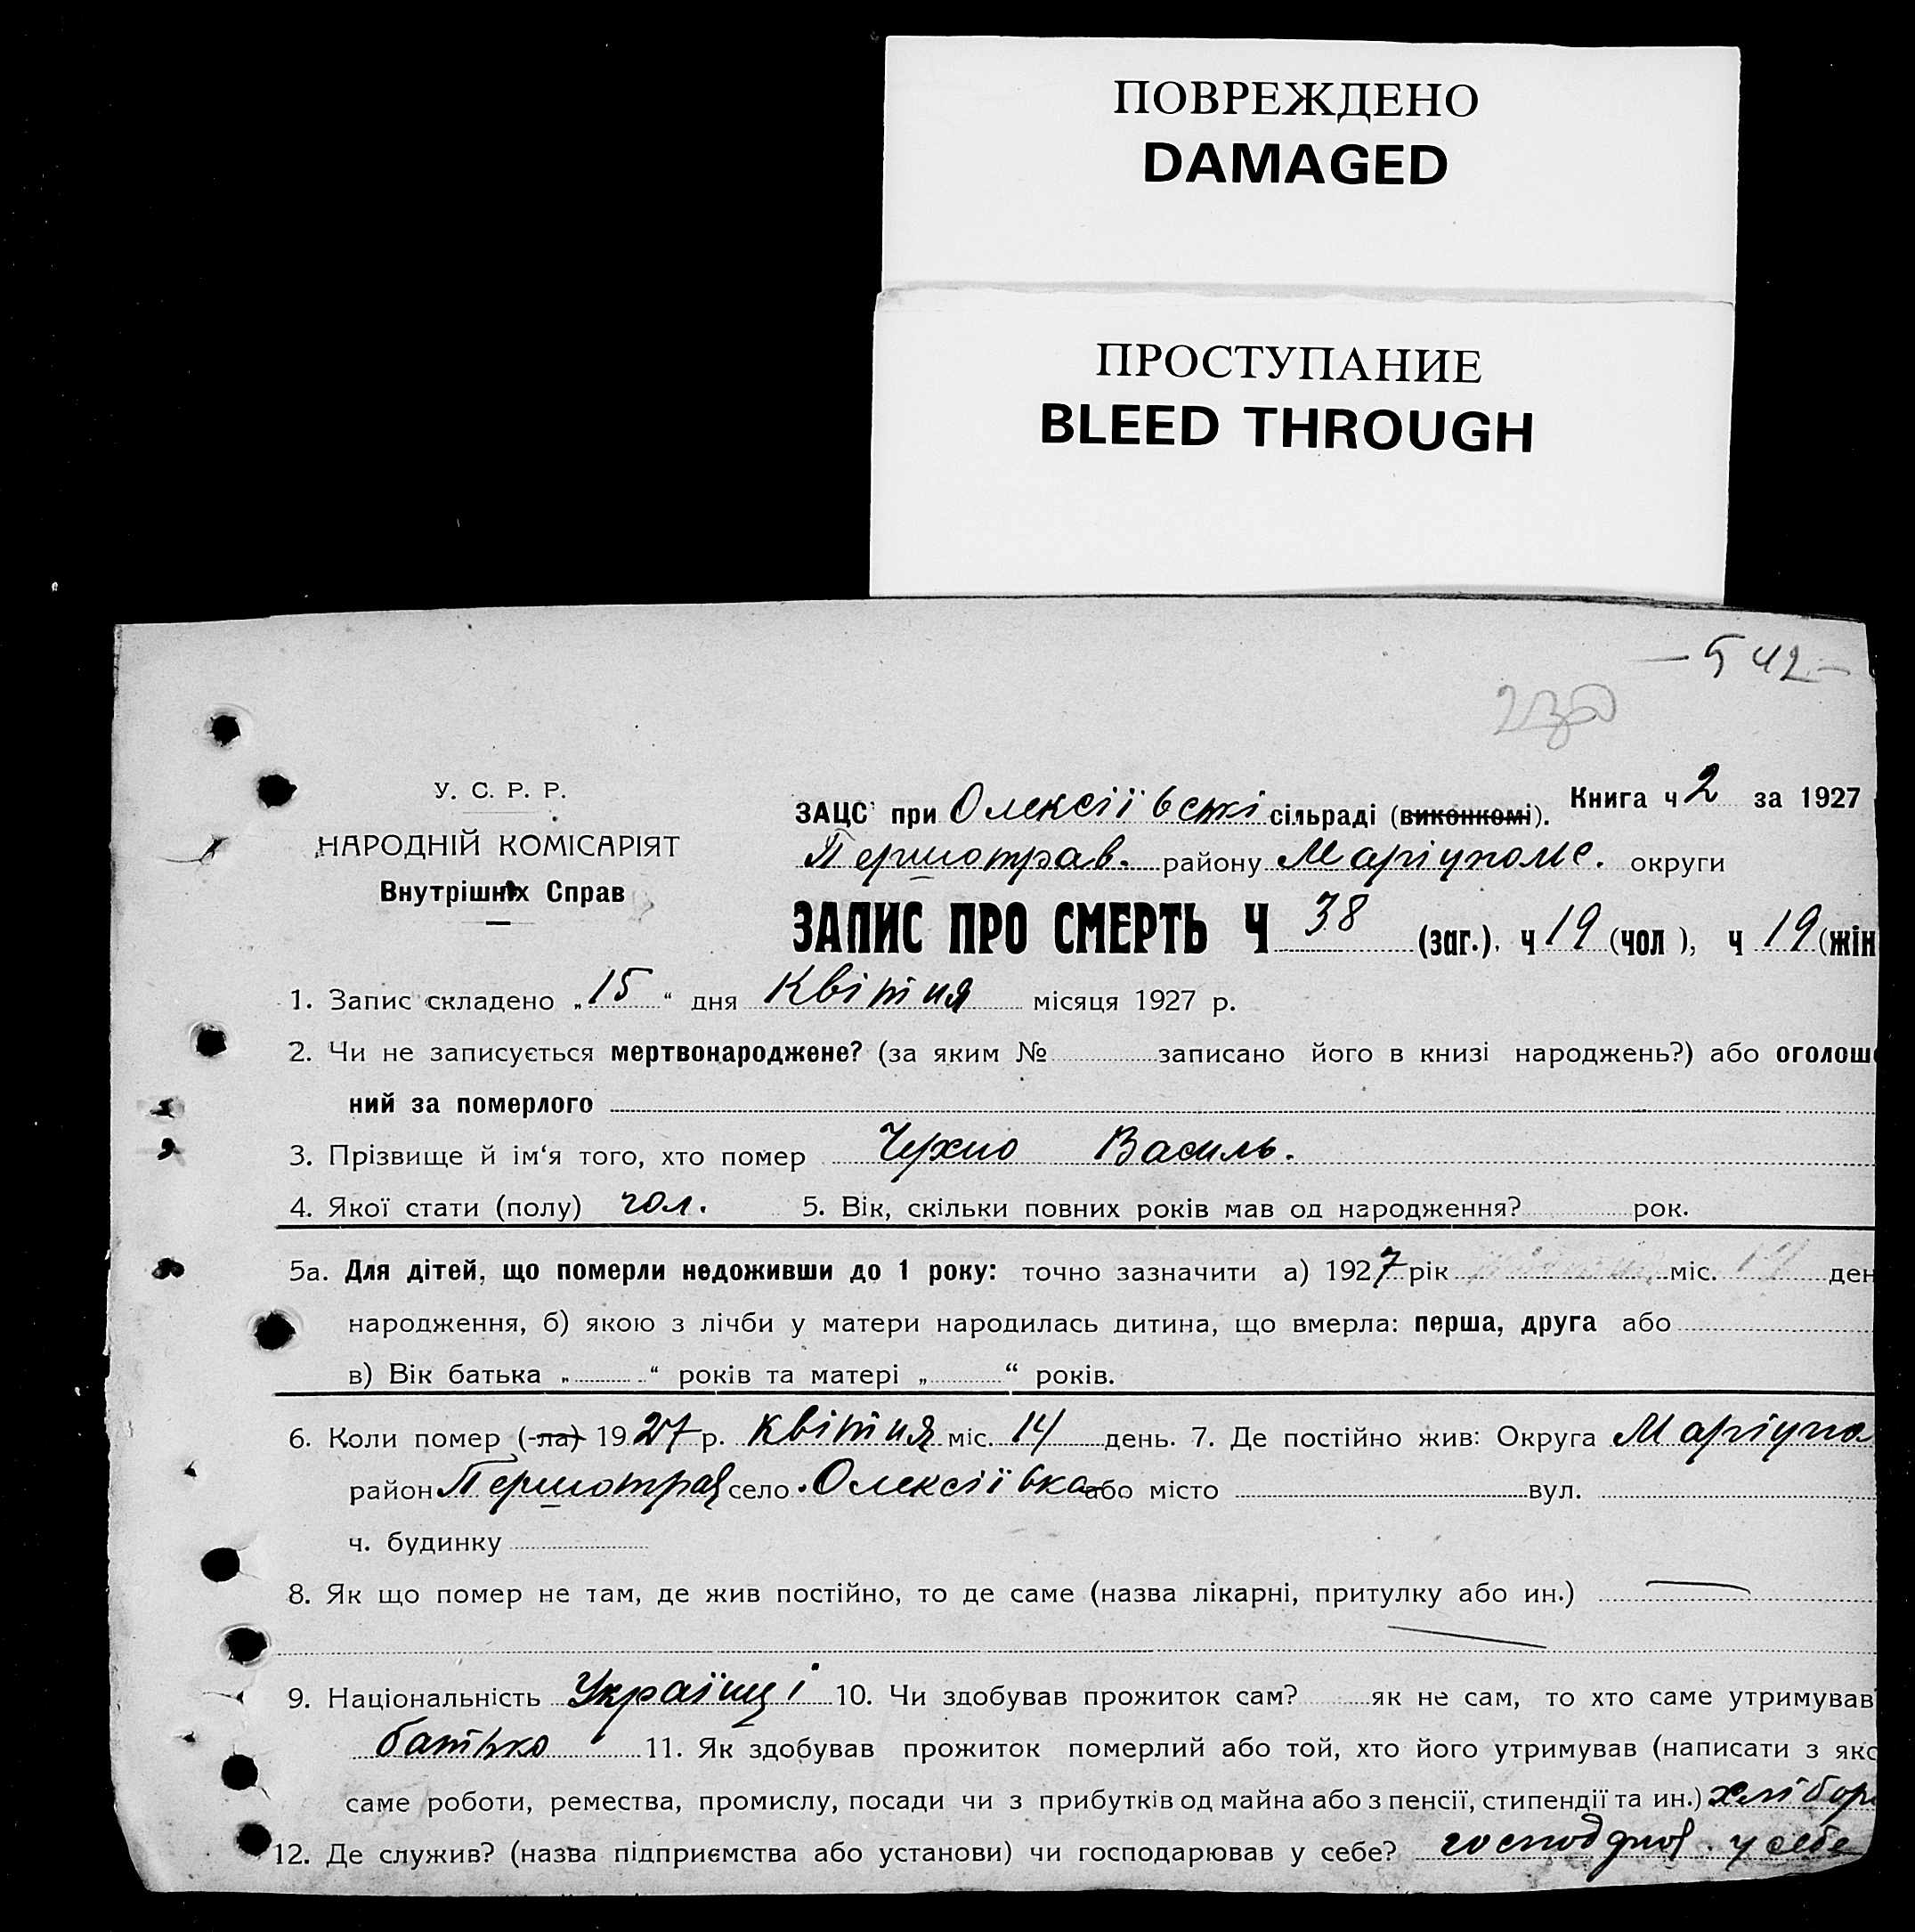 ПОВРЕЖДЕНО
DAMAGED
ПРОСТУПАНИЕ
BLEED THROUGH
542
У. С. Р. Р.
НАРОДНІЙ КОМІСАРІЯТ
Внутрішніх Справ
Книга ч 2 за 1927
ЗАЦС при Олексіївські сільраді (виконкомі).
Першотрав. району Маріупольс. округи
ЗАПИС ПРО СМЕРТЬ Ч 38 (заг.), ч 19 (чол), ч 19 (жін
1. Запис складено „15“ дня Квітня місяця 1927 р.
2. Чи не записується мертвонароджене? (за яким № записано його в книзі народжень?) або оголоше
ний за померлого
3. Прізвище й ім‘я того, хто помер Чухно Василь.
4. Якої стати (полу) чол. 5. Вік, скільки повних років мав од народження? рок.
5а. Для дітей, що померли недоживши до 1 року: точно зазначити а) 1927 рік міс. 14 ден
народження, б) якою з лічби у матери народилась дитина, що вмерла: перша, друга або
в) Вік батька „ “ років та матері „ “ років.
6. Коли помер (-ла) 1927 р. квітня міс. 14 день. 7. Де постійно жив: Округа Маріупо
район Першотрав село Олексіївка або місто вул.
ч. будинку
8. Як що помер не там, де жив постійно, то де саме (назва лікарні, притулку або ин.)
9. Національність Українці 10. Чи здобував прожиток сам? як не сам, то хто саме утримував
батько 11. Як здобував прожиток померлий або той, хто його утримував (написати з яко
саме роботи, ремества, промислу, посади чи з прибутків од майна або з пенсії, стипендії та ин.) хлібор
12. Де служив? (назва підприємства або установи) чи господарював у себе? у себе